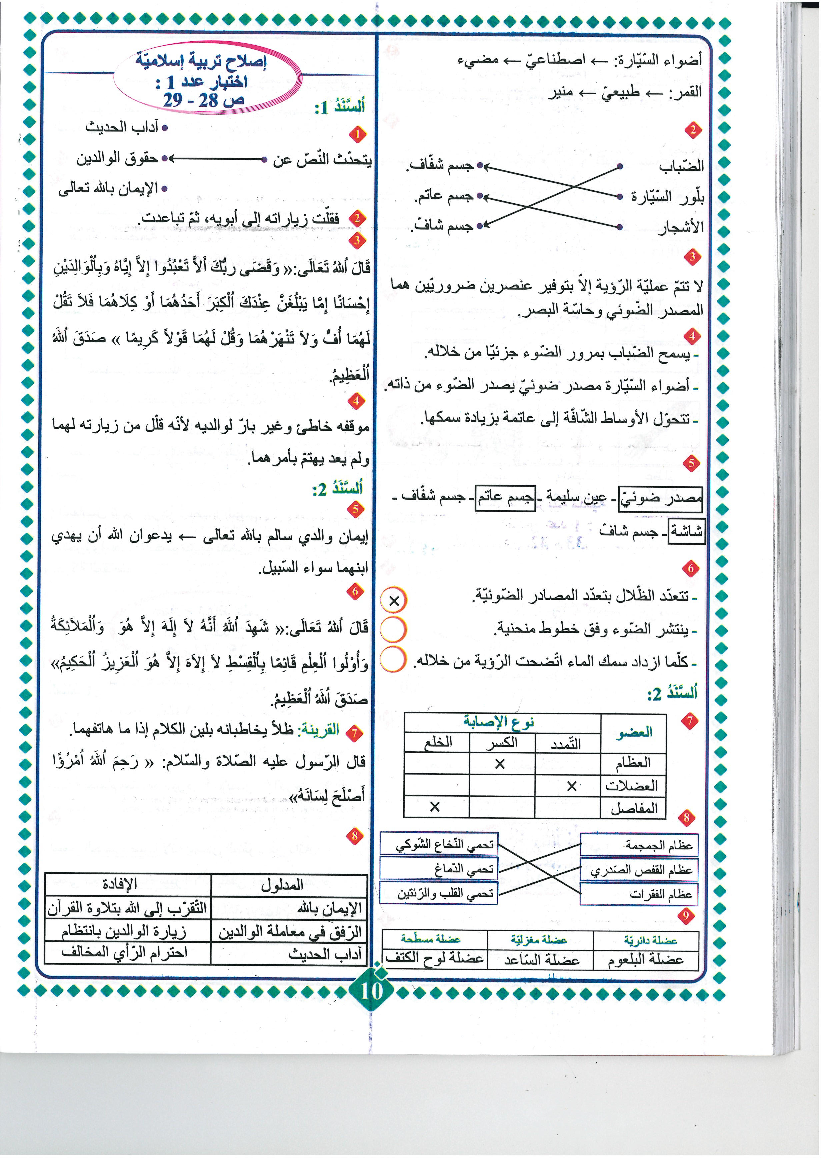 أضواء السّيّارة: ← اصطناعيّ ← مضيء
القمر: ← طبيعيّ ← منير
2
الضّباب • جسم شفّاف.
بلّور السّيّارة • جسم عاتم.
الأشجار • جسم شافّ.
3
لا تتمّ عمليّة الرّؤية إلاّ بتوفير عنصرين ضروريّين هما
المصدر الضّوئي وحاسّة البصر.
4
- يسمح الضّباب بمرور الضّوء جزئيّا من خلاله.
- أضواء السّيّارة مصدر ضوئيّ يصدر الضّوء من ذاته.
- تتحوّل الأوساط الشّافّة إلى عاتمة بزيادة سمكها.
5
مصدر ضوئيّ - عين سليمة - جسم عاتم - جسم شفّاف -
شاشة - جسم شافّ
6
- تتعدّد الظّلال بتعدّد المصادر الضّوئيّة. ×
- ينتشر الضّوء وفق خطوط منحنية.
- كلّما ازداد سمك الماء اتّضحت الرّؤية من خلاله.
اَلسَّنَدُ 2:
7
العضو نوع الإصابة
التّمدد الكسر الخلع
العظام ×
العضلات ×
المفاصل ×
8
عظام الجمجمة تحمي النّخاع الشّوكي
عظام القفص الصّدري تحمي الدّماغ
عظام الفقرات تحمي القلب والرّئتين
9
عضلة دائريّة عضلة مغزليّة عضلة مسطّحة
عضلة البلعوم عضلة السّاعد عضلة لوح الكتف
إصلاح تربية إسلاميّة
اختبار عدد 1 :
ص 28 - 29
اَلسَّنَدُ 1:
1
• آداب الحديث
يتحدّث النّصّ عن • حقوق الوالدين
• الإيمان بالله تعالى
2 فقلّت زياراته إلى أبويه، ثمّ تباعدت.
3
قَالَ اَللهُ تَعَالَى:« وَقَضَى رَبُّكَ أَلاَّ تَعْبُدُوا إِلاَّ إِيَّاهُ وَبِالْوَالِدَيْنِ
إِحْسَانًا إِمَّا يَبْلُغَنَّ عِنْدَكَ اُلْكِبَرَ أَحَدُهُمَا أَوْ كِلاَهُمَا فَلاَ تَقُلْ
لَهُمَا أُفٍّ وَلاَ تَنْهَرْهُمَا وَقُلْ لَهُمَا قَوْلاً كَرِيمًا » صَدَقَ اَللهُ
اُلْعَظِيمُ.
4
موقفه خاطئ وغير بارّ لوالديه لأنّه قلّل من زيارته لهما
ولم يعد يهتمّ بأمرهما.
اَلسَّنَدُ 2:
5
إيمان والدي سالم بالله تعالى ← يدعوان الله أن يهدي
ابنهما سواء السّبيل.
6
قَالَ اَللهُ تَعَالَى:« شَهِدَ اَللهُ أَنَّهُ لاَ إِلَهَ إِلاَّ هُوَ وَاُلْمَلاَئِكَةُ
وَأُوْلُوا اُلْعِلْمِ قَائِمًا بِاُلْقِسْطِ لاَ إِلاَهَ إِلاَّ هُوَ اُلْعَزِيزُ اُلْحَكِيمُ»
صَدَقَ اَللهُ اُلْعَظِيمُ.
7 القرينة: ظلاّ يخاطبانه بلين الكلام إذا ما هاتفهما.
قال الرّسول عليه الصّلاة والسّلام: « رَحِمَ اَللهُ اُمْرُؤًا
أَصْلَحَ لِسَانَهُ»
8
المدلول الإفادة
الإيمان بالله التّقرّب إلى الله بتلاوة القرآن
الرّفق في معاملة الوالدين زيارة الوالدين بانتظام
آداب الحديث احترام الرّأي المخالف
10